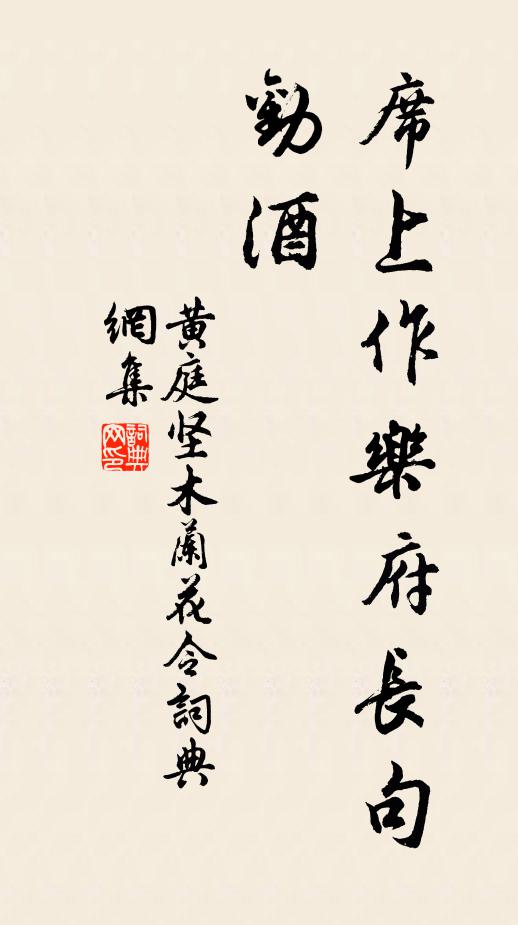 席上作樂府長句
勸酒
黃庭坚木蘭花令詞典
網集
詞典
网印